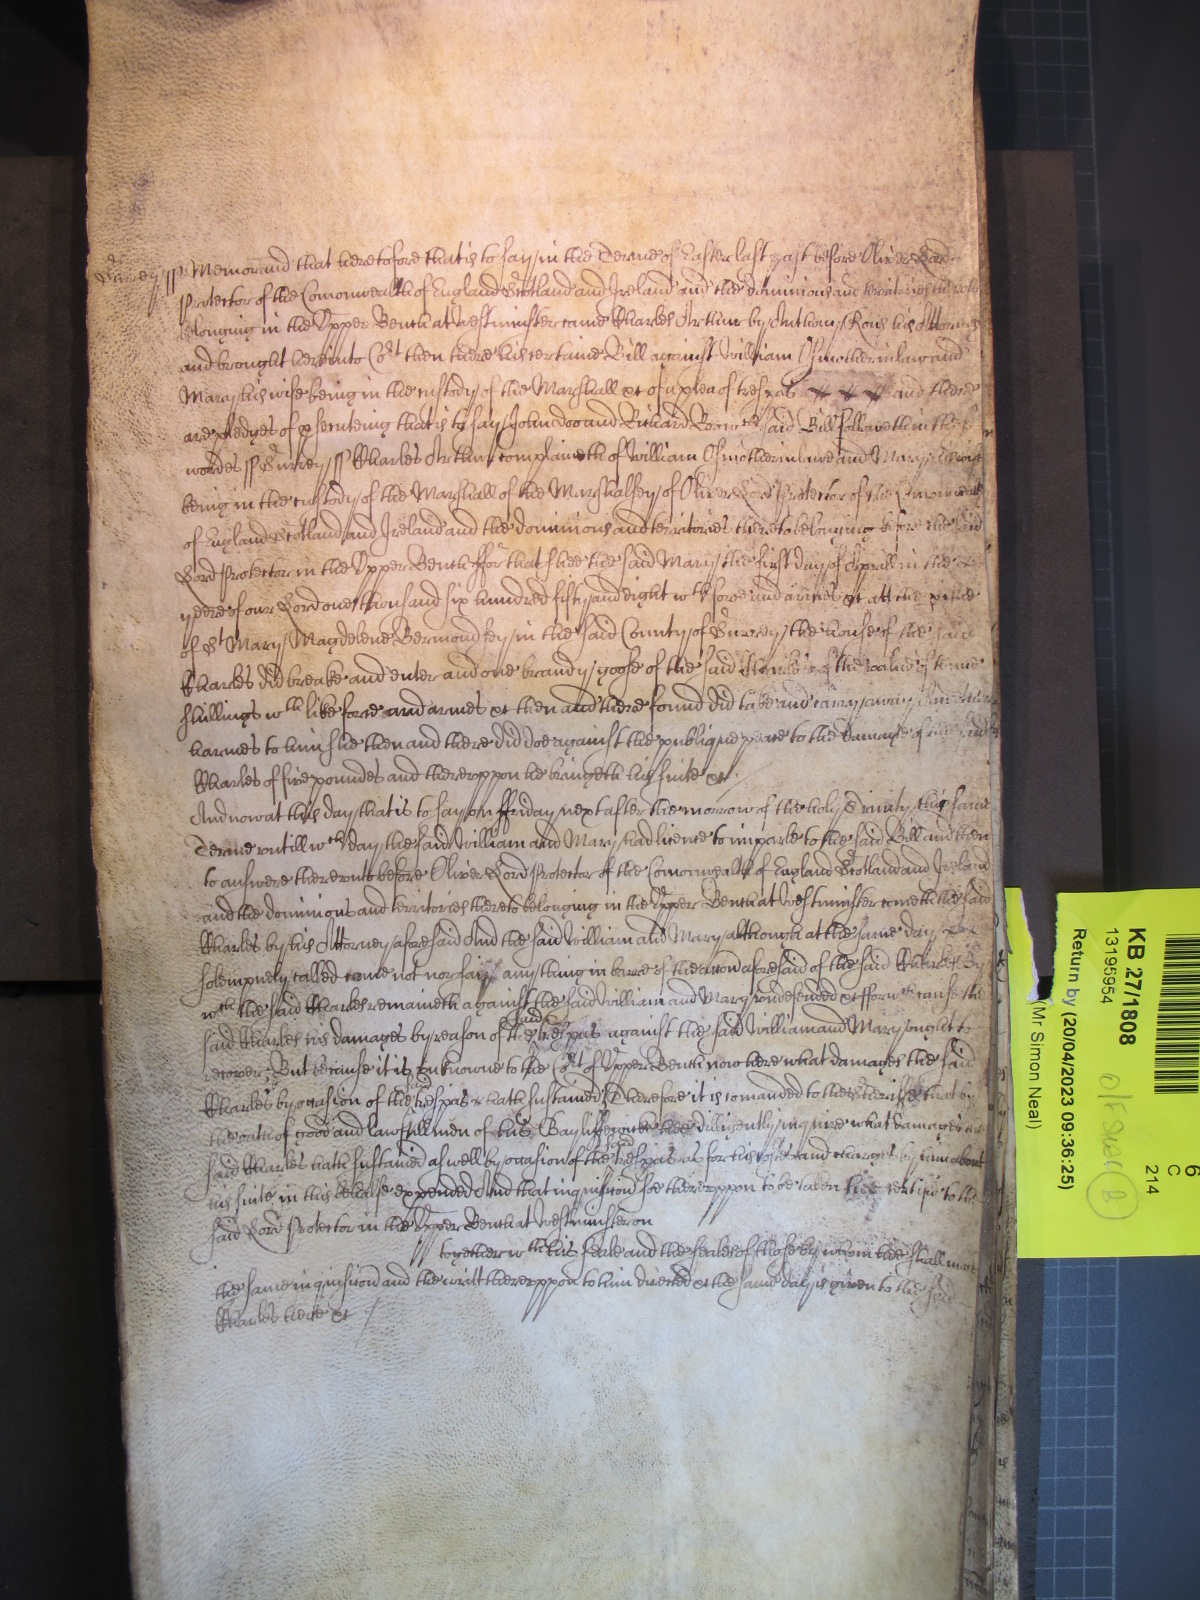 Surrey ss Memorand that heretofore that is to say in the Terme of Easter last past before Oliver Lord
Protector of the Comonwealth of England Scotland and Ireland and the dominions and territories thereto
belonging in the Upper Bench at Westminster came Charles Arthur by Anthony Rous his Attorney
and brought here into Cort then there his certaine Bill against William Osmotherinlaw and
Mary his wife being in the custody of the Marshall &c of a plea of trespas and there
are pledges of prsecuteing that is to say John Doo and Richard Roo wch said Bill followeth in these
wordes ss Surrey ss Charles Arthur complaineth of William Osmotherinlawe and Mary his wife
being in the custody of the Marshall of the Marshalsey of Oliver Lord Protector of the Comonwealth
of England Scotland and Ireland and the dominions and territories thereto belonging before the said
Lord Protector in the Upper Bench ffor that shee the said Mary the first day of Aprill in the
yeare of our Lord one thousand six hundred fifty and eight wth force and armes &c att the prishe
of St Mary Magdelene Bermondsey in the said County of Surrey the house of the said
Charles did breake and enter and one brandy goose of the said Charles of the value of tenne
shillings wth like force and armes &c then and there found did take and carry away and other
harmes to him shee then and there did doe against the publique peace to the damage of the said
Charles of five poundes and thereuppon he bringeth his suite &c
And now at this day that is to say on ffriday next after the morrow of the holy Trinity this same
Terme untill wch day the said William and Mary had licence to imparle to the said Bill and then
to answere thereunto before Oliver Lord Protector of the Comonwealth of England Scotland and Ireland
and the dominions and territories thereto belonging in the Upper Bench at Westminster cometh the said
Charles by his Attorney aforesaid And the said William and Mary although at the same day
solempnely called come not nor say any thing in barre of the accon aforesaid of the said Charles By
wch the said Charles remaineth against the said William and Mary undefended &c ffor wch cause the
said Charles his damages by reason of the said trespas against the said William and Mary ought to
recover But because it is unknowne to the Cort of Upper Bench now here what damages the said
Charles by occasion of the said trespas hath sustained Therefore it is comanded to the Sherriffe that by
the oath of good and lawfull men of his Bayliffewicke hee diligently inquire what damages the
said Charles hath sustained as well by occasion of the said trespas as for his costes and charges by him about
his suite in this behalfe expended And that inquisicion soe thereuppon to be taken hee certifie to the
said Lord Protector in the Upper Bench at Westminster on
together wth his seale and the seales of those by whom hee shall make
the same inquisicion and the writt thereuppon to him directed &c the same day is given to the said
Charles here &c
KB 27/1808
13195954
Return by (20/04/2023 09:36:25)
(Mr Simon Neal)
6
C
214